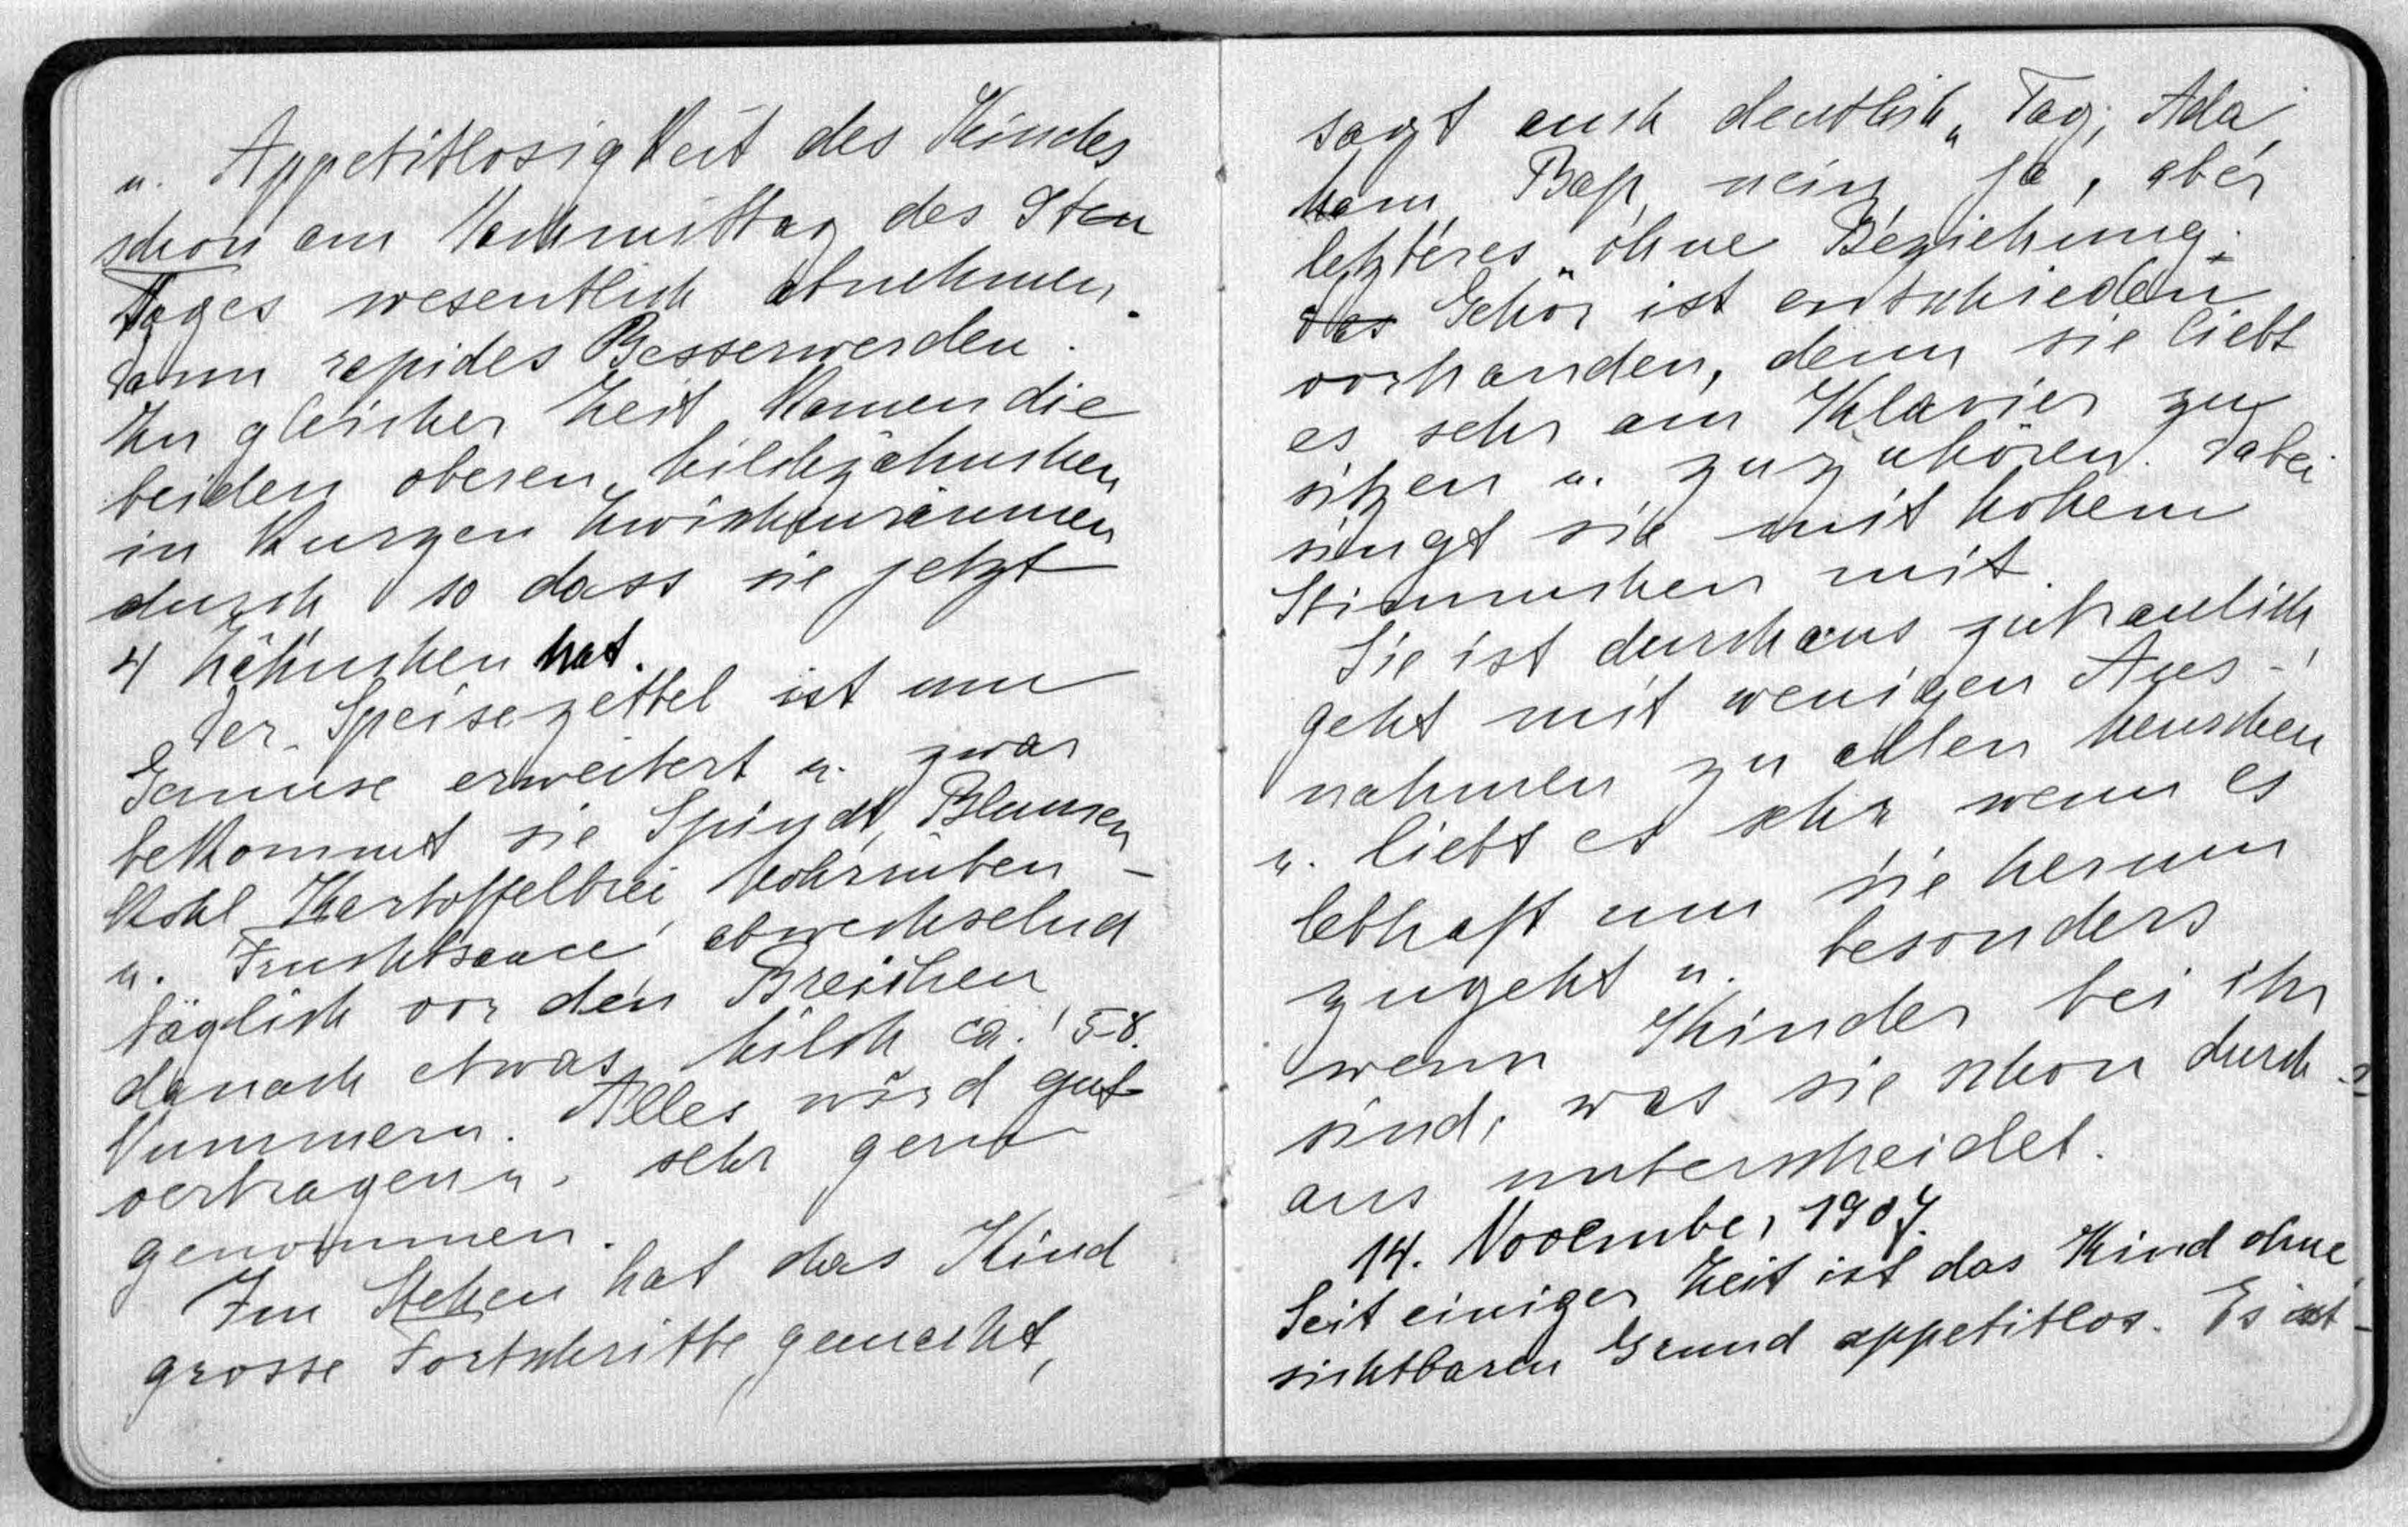 u. Appetitlosigkeit des Kindes
schon am Nachmittag des 8ten
Tages wesentlich abnehmen.
Dann rapides Besserwerden.
Zu gleicher Zeit kamen die
beiden oberen Milchzähnchen
in kurzen Zwischenräumen
durch so dass sie jetzt
4 Zähnchen hat.
Der Speisezettel ist um
Gemüse erweitert u. zwar
bekommt sie Spinat, Blumen-
kohl Kartoffelbrei, Mohrrüben
u. Fruchtsauce abwechselnd
täglich vor den Breichen
danach etwas Milch ca. 5-8.
Nummern. Alles wird gut
vertragen u. sehr gern
genommen.
Im Stehen hat das Kind
grosse Fortschritte gemacht,
sagt auch deutlich „Tag, Ada,
kam, Bap, nein, ja", aber
letzteres ohne Beziehung.
das Gehör ist entschieden
vorhanden, denn sie liebt
es sehr am Klavier zu
sitzen u. zuzuhören. Dabei
singt sie mit hohem
Stimmchen mit.
Sie ist durchaus zutraulich,
geht mit wenigen Aus-
nahmen zu allen Menschen
u. liebt es sehr wenn es
lebhaft um sie herum
zugeht u. besonders
wenn Kinder bei ihr
sind, was sie schon durch-
aus unterscheidet.
14. November 1907.
Seit einiger Zeit ist das Kind ohne
sichtbaren Grund appetitlos. Es ist